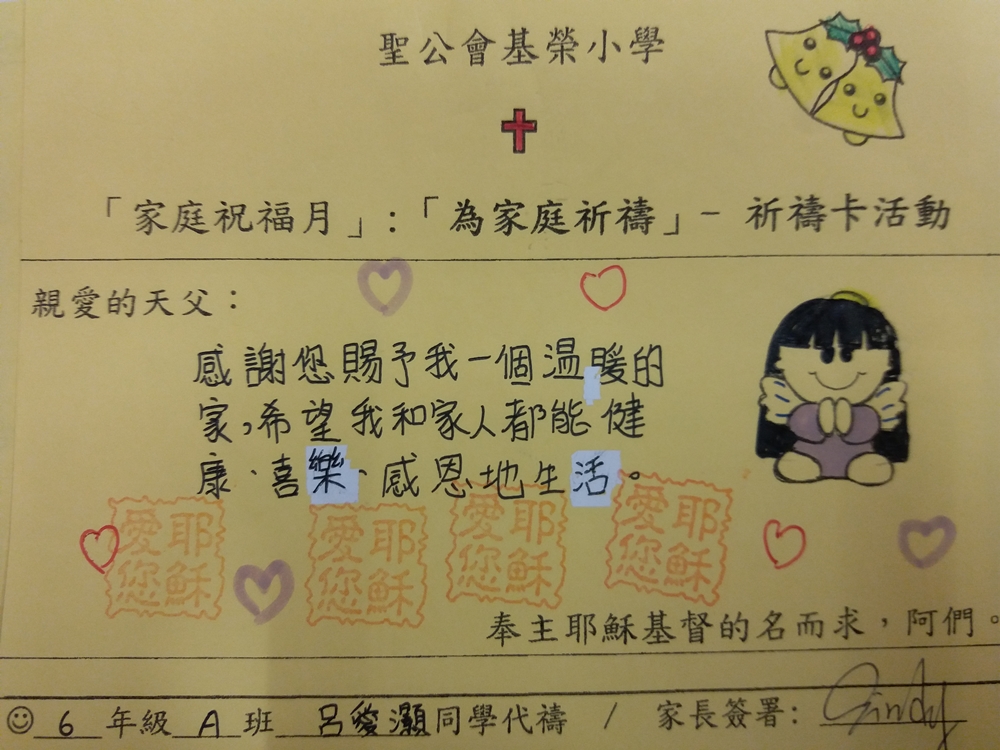 聖公會基榮小學
「家庭祝福月」:「為家庭祈禱」- 祈禱卡活動
親愛的天父：
感謝您賜予我一個溫暖的
家,希望我和家人都能健
康、喜樂、感恩地生活。
愛耶 愛耶 愛耶 愛耶
您穌 您穌 您穌 您穌
奉主耶穌基督的名而求，阿們。
☺ 6 年級 A 班 呂愛灝同學代禱 / 家長簽署: Cindy